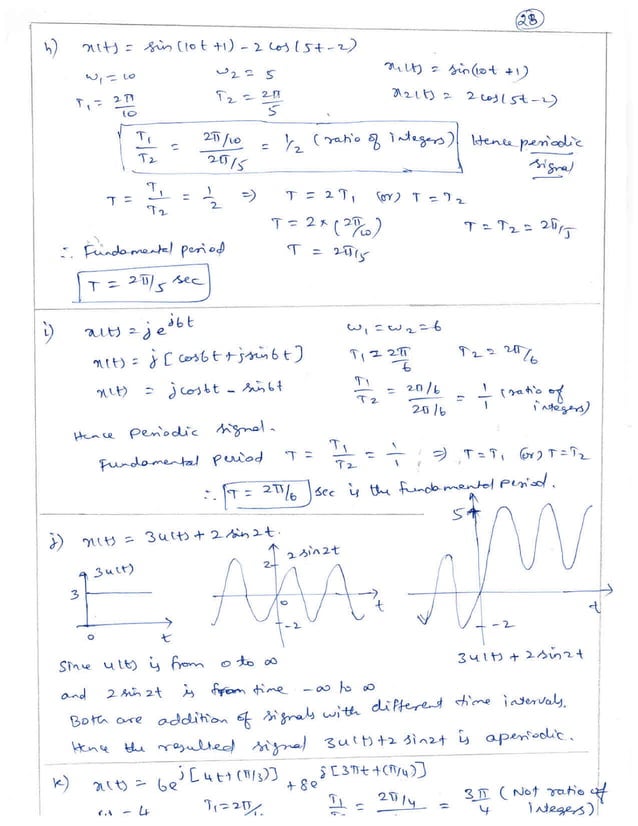 28
h) x(t) = sin(10t+1) - 2cos(5t-2)
ω1 = 10 ω2 = 5 x1(t) = sin(10t+1)
T1 = 2π/10 T2 = 2π/5 x2(t) = 2cos(5t-2)
T1/T2 = (2π/10)/(2π/5) = 1/2 (ratio of integers) Hence periodic signal
T = T1/T2 = 1/2 ⇒ T = 2T1 (or) T = T2
T = 2×(2π/10) T = T2 = 2π/5
∴ Fundamental period T = 2π/5
T = 2π/5 sec
i) x(t) = je^j6t ω1 = ω2 = 6
x(t) = j[cos6t + jsin6t] T1 = 2π/6 T2 = 2π/6
x(t) = jcos6t - sin6t T1/T2 = (2π/6)/(2π/6) = 1/1 (ratio of integers)
Hence periodic signal.
Fundamental period T = T1/T2 = 1/1 ; ⇒ T = T1 (or) T = T2
∴ T = 2π/6 sec is the fundamental period.
j) x(t) = 3u(t) + 2 sin2t.
3u(t) 2 sin2t 5
3 2
0 t 0 t t
-2 -2
3u(t) + 2 sin2t
Since u(t) is from 0 to ∞
and 2 sin2t is from time -∞ to ∞
Both are addition of signals with different time intervals.
Hence the resulted signal 3u(t)+2 sin2t is aperiodic.
k) x(t) = 6e^j[4t+(π/3)] + 8e^j[3πt+(π/4)]
T1 = 2π/ T1/ = 2π/4 = 3π/4 (Not ratio of integers)